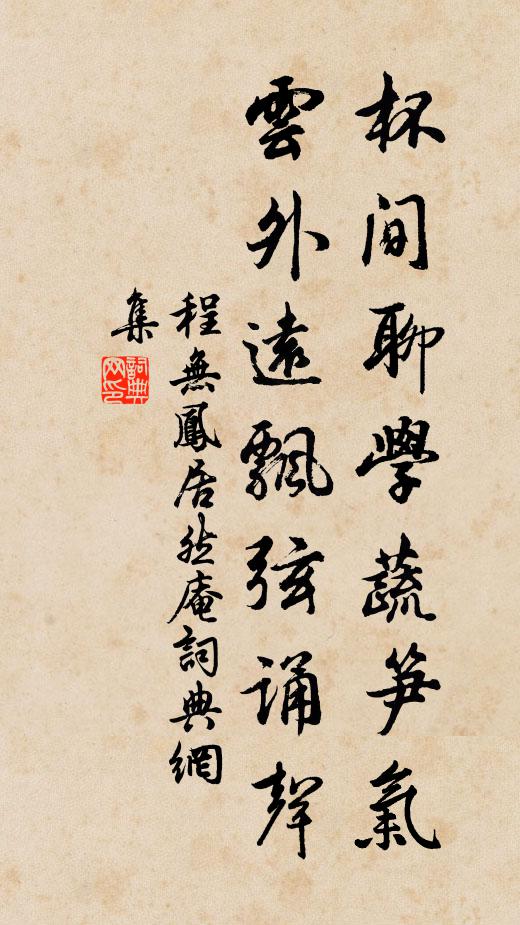 杯間聊學蔬笋氣
雲外遠飄弦誦聲
程無鳳居然庵詞典網
集
詞典
网印